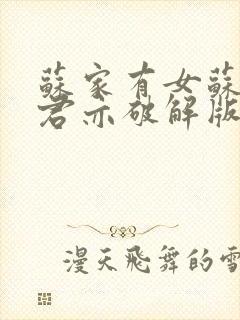 蘇家有女蘇
君亦破解版
漫天飛舞的雪